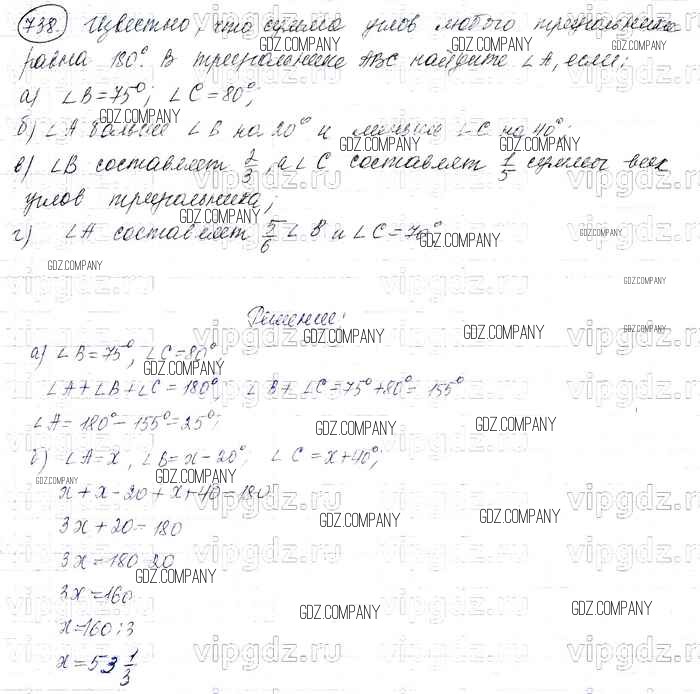 738. Известно, что сумма углов любого треугольника
равна 180°. В треугольнике ABC найдите ∠A, если:
а) ∠B=75°; ∠C=80°;
б) ∠A больше ∠B на 20° и меньше ∠C на 40°;
в) ∠B составляет 2/3, а ∠C составляет 1/5 суммы всех
углов треугольника;
г) ∠A составляет 5/6 ∠B и ∠C=70°
Решение:
а) ∠B=75°, ∠C=80°
∠A+∠B+∠C=180°; ∠B+∠C=75°+80°=155°
∠A=180°-155°=25°;
б) ∠A=x, ∠B=x-20°, ∠C=x+40°;
x+x-20+x+40=180
3x+20=180
3x=180-20
3x=160
x=160:3
x=53 1/3
GDZ.COMPANY
vipgdz.ru